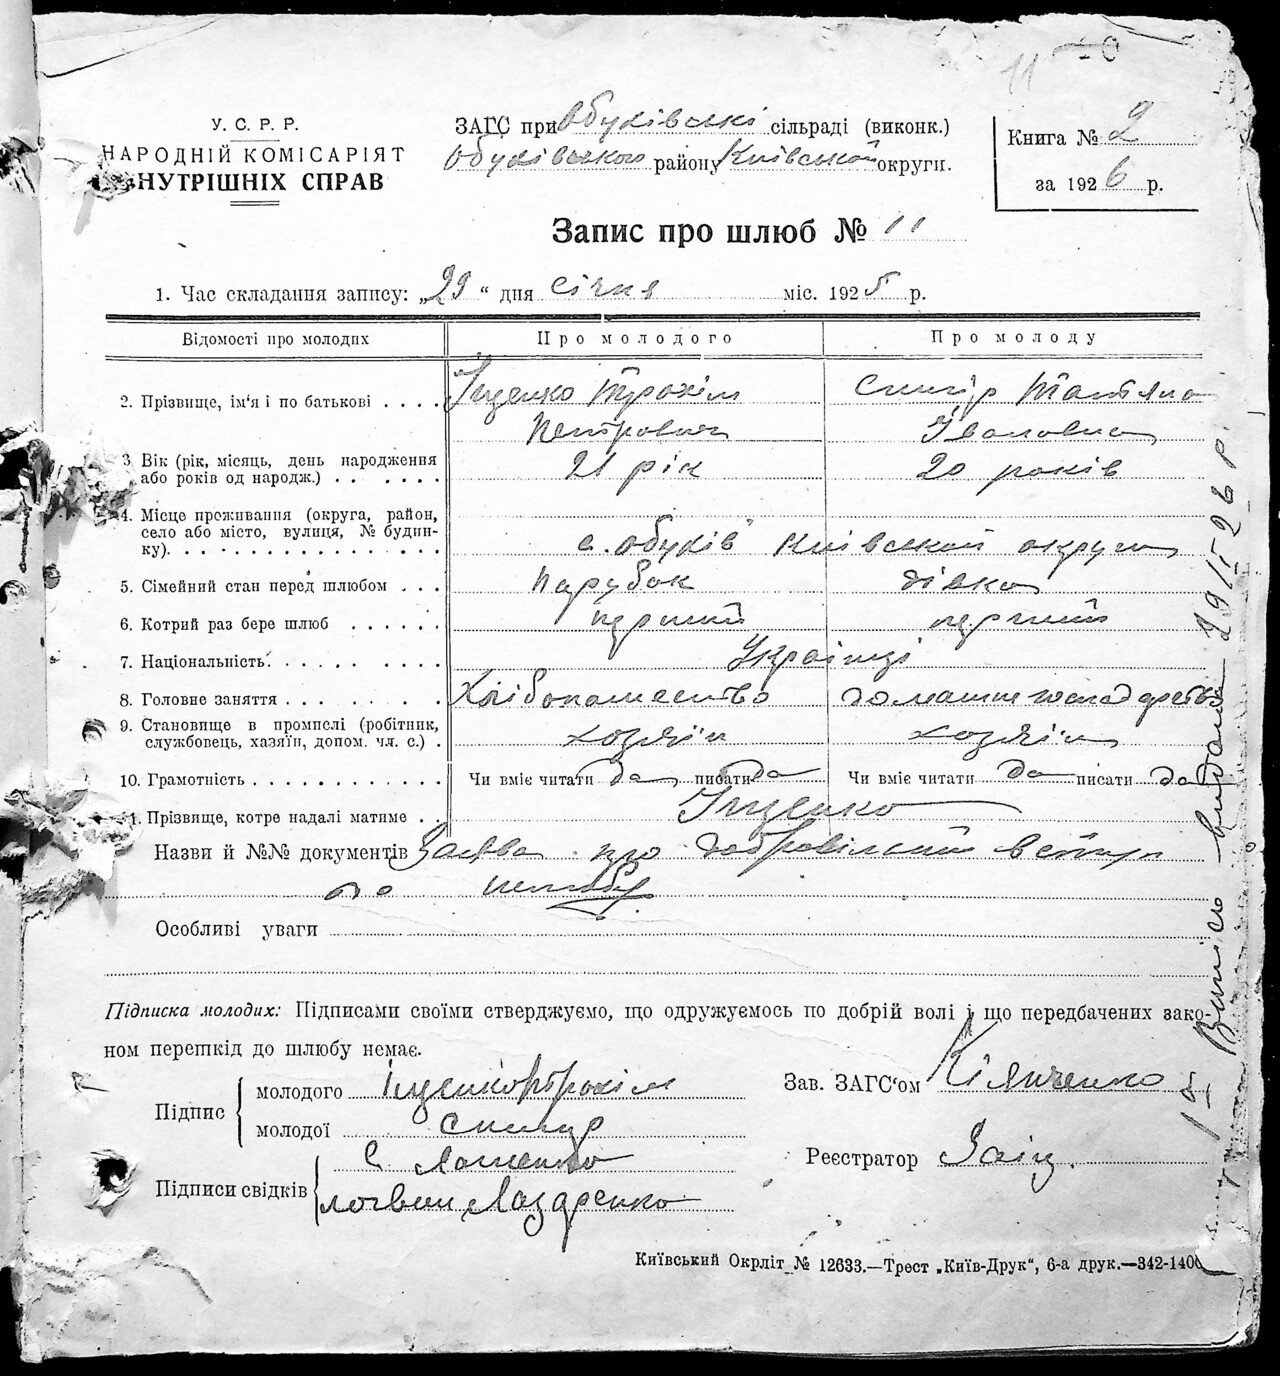 11
У. С. Р. Р.
НАРОДНІЙ КОМІСАРІЯТ
ВНУТРІШНІХ СПРАВ
ЗАГС при Обухівські сільраді (виконк.)
Обухівського району Київської округи.
Книга № 2
за 1926 р.
Запис про шлюб № 11
1. Час складання запису: „29“ дня Січня міс. 192 р.
Відомості про молодих Про молодого Про молоду
2. Прізвище, ім'я і по батькові . . . . Іщенко Трохім Татіяна
Петрович Івановна
3. Вік (рік, місяць, день народження
або років од народж.) . . . . . . 21 рік 20 років
4. Місце проживання (округа, район,
село або місто, вулиця, № будин-
ку). . . . . . . . . . . . . . . с. Обухів Київської округи
5. Сімейний стан перед шлюбом . . . Парубок дівка
6. Котрий раз бере шлюб . . . . . . перший перший
7. Національність. . . . . . . . . . Українці
8. Головне заняття . . . . . . . . Хлібопашество домашнє
9. Становище в промислі (робітник,
службовець, хазяїн, допом. чл. с.) . хозяїн хозяїн
10. Грамотність . . . . . . . . . . . . Чи вміє читати да писати да Чи вміє читати да писати да
11. Прізвище, котре надалі матиме . . Іщенко
Назви й №№ документів Заява про добровільний вступ
до шлюбу
Особливі уваги
Підписка молодих: Підписами своїми стверджуємо, що одружуємось по добрій волі і що передбачених зако-
ном перешкід до шлюбу немає.
Підпис
молодого Іщенко Трохім
молодої
Зав. ЗАГС'ом
Реєстратор Заїц.
Підписи свідків
Логвин Лазаренко
Київський Окрліт № 12633.—Трест „Київ-Друк“, 6-а друк.—342-140
Випись видана 29/I 26 р.